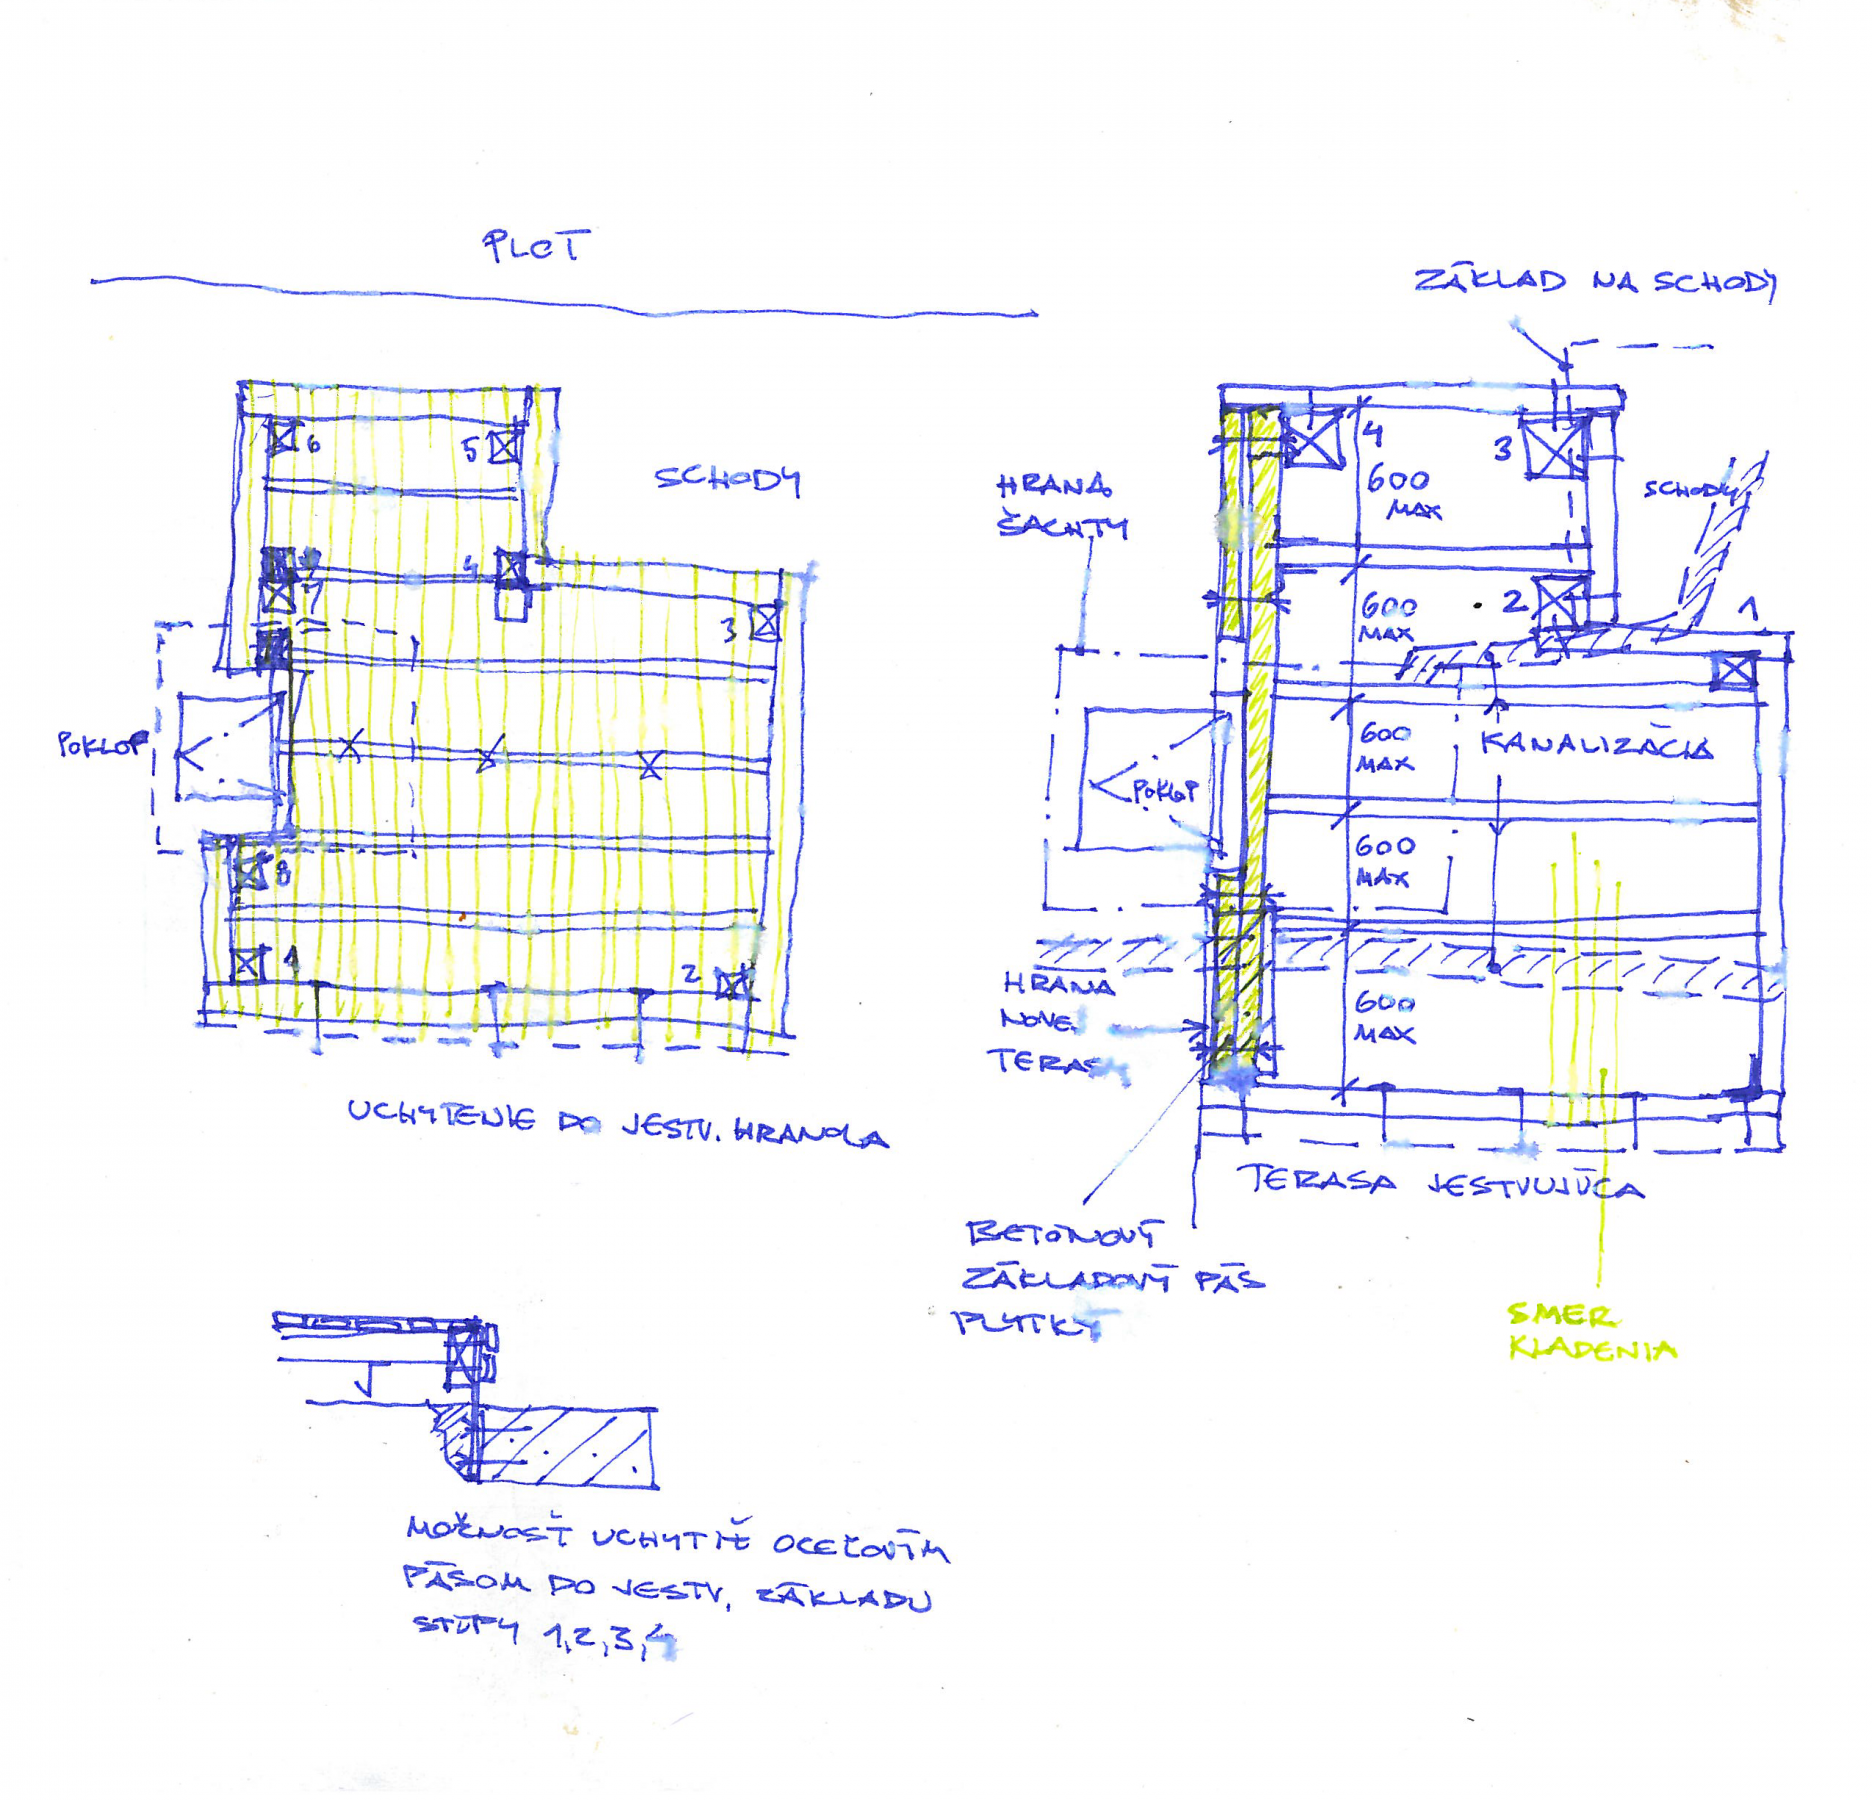 PLOT
ZÁKLAD NA SCHODY
6
5
SCHODY
7
4
3
POKLOP
8
1
2
UCHYTENIE DO JESTV. HRANOLA
HRANA
ŠACHTY
4
3
600
MAX
SCHODY
600
MAX
2
1
600
MAX
KANALIZÁCIA
POKLOP
600
MAX
HRANA
NOVEJ
TERASY
600
MAX
TERASA JESTVUJÚCA
BETONOVÝ
ZÁKLADOVÝ PÁS
PLYTKÝ
SMER
KLADENIA
MOŽNOSŤ UCHYTIŤ OCEĽOVÝM
PÁSOM DO JESTV. ZÁKLADU
STĹPY 1,2,3,4